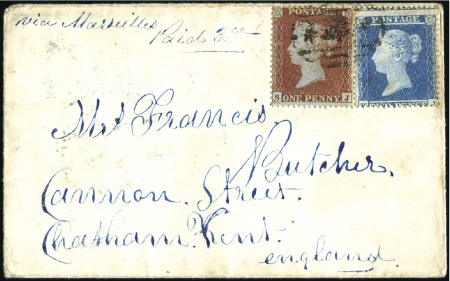 via Marseilles
Paid 3d
POSTAGE
POSTAGE
S ONE PENNY J
Mrs Francis
Butcher.
Cannon. Street.
Chatham. Kent.
england.